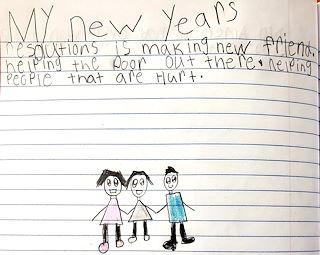 My new years
resolutions is making new friend,
helping the poor out there, helping
people that are Hurt.